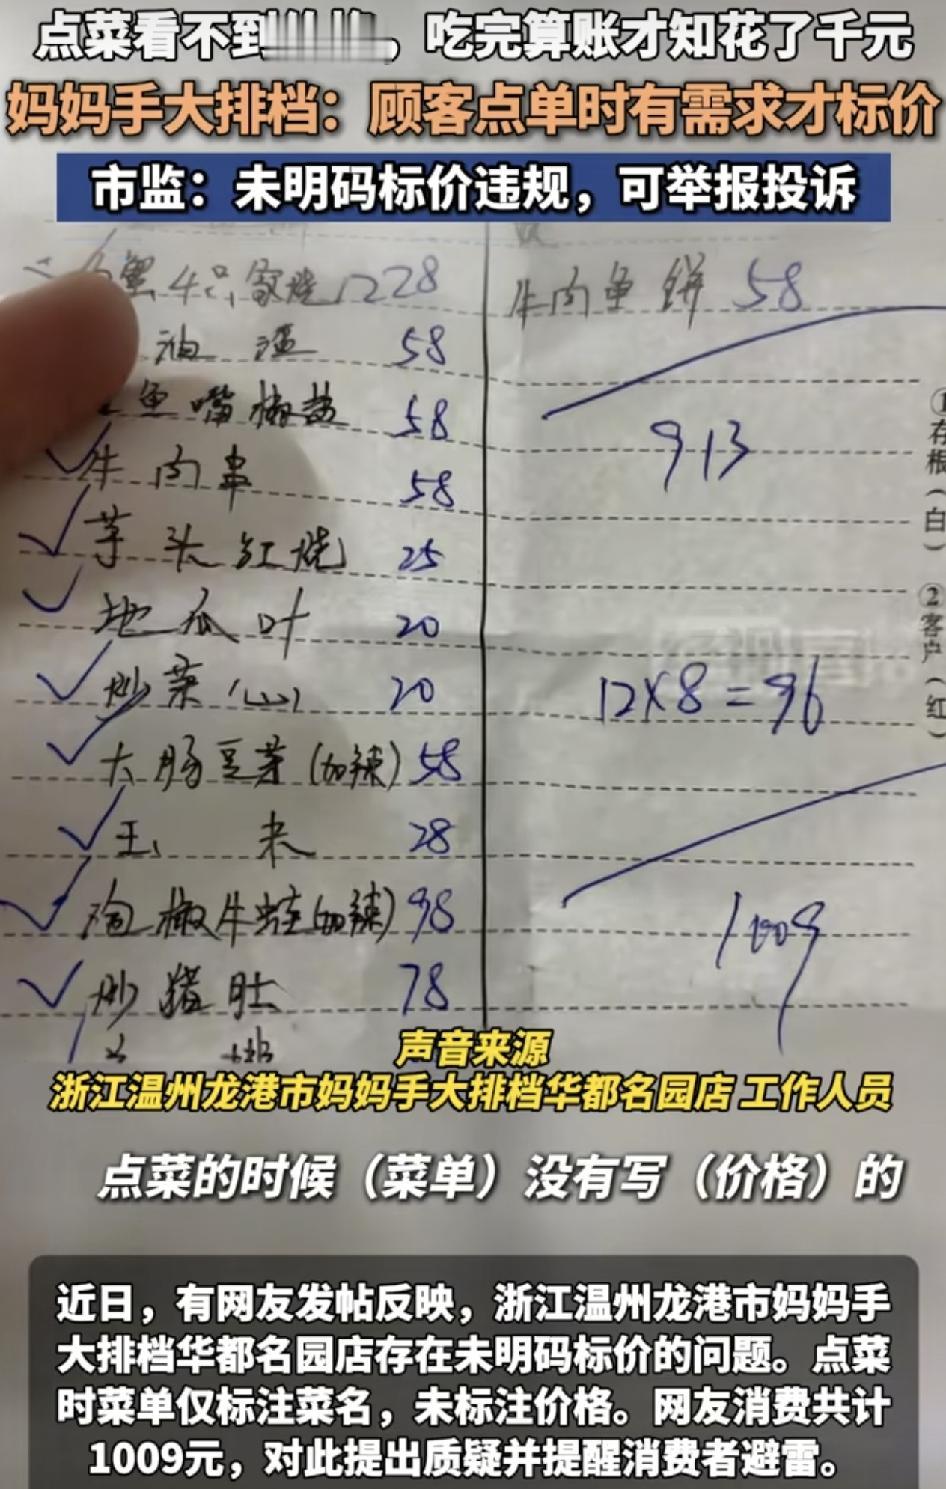 点菜看不到，吃完算账才知花了千元
妈妈手大排档：顾客点单时有需求才标价
市监：未明码标价违规，可举报投诉
蟹4只家烧 228
油渣 58
鱼嘴椒盐 58
牛肉串 58
芋头红烧 25
地瓜叶 20
炒菜(山) 20
大肠豆芽(加辣) 58
玉米 28
泡椒牛蛙(加辣) 98
炒猪肚 78
牛肉卷饼 58
913
12×8=96
1009
①存根(白)
②客户(红)
声音来源
浙江温州龙港市妈妈手大排档华都名园店 工作人员
点菜的时候（菜单）没有写（价格）的
近日，有网友发帖反映，浙江温州龙港市妈妈手
大排档华都名园店存在未明码标价的问题。点菜
时菜单仅标注菜名，未标注价格。网友消费共计
1009元，对此提出质疑并提醒消费者避雷。